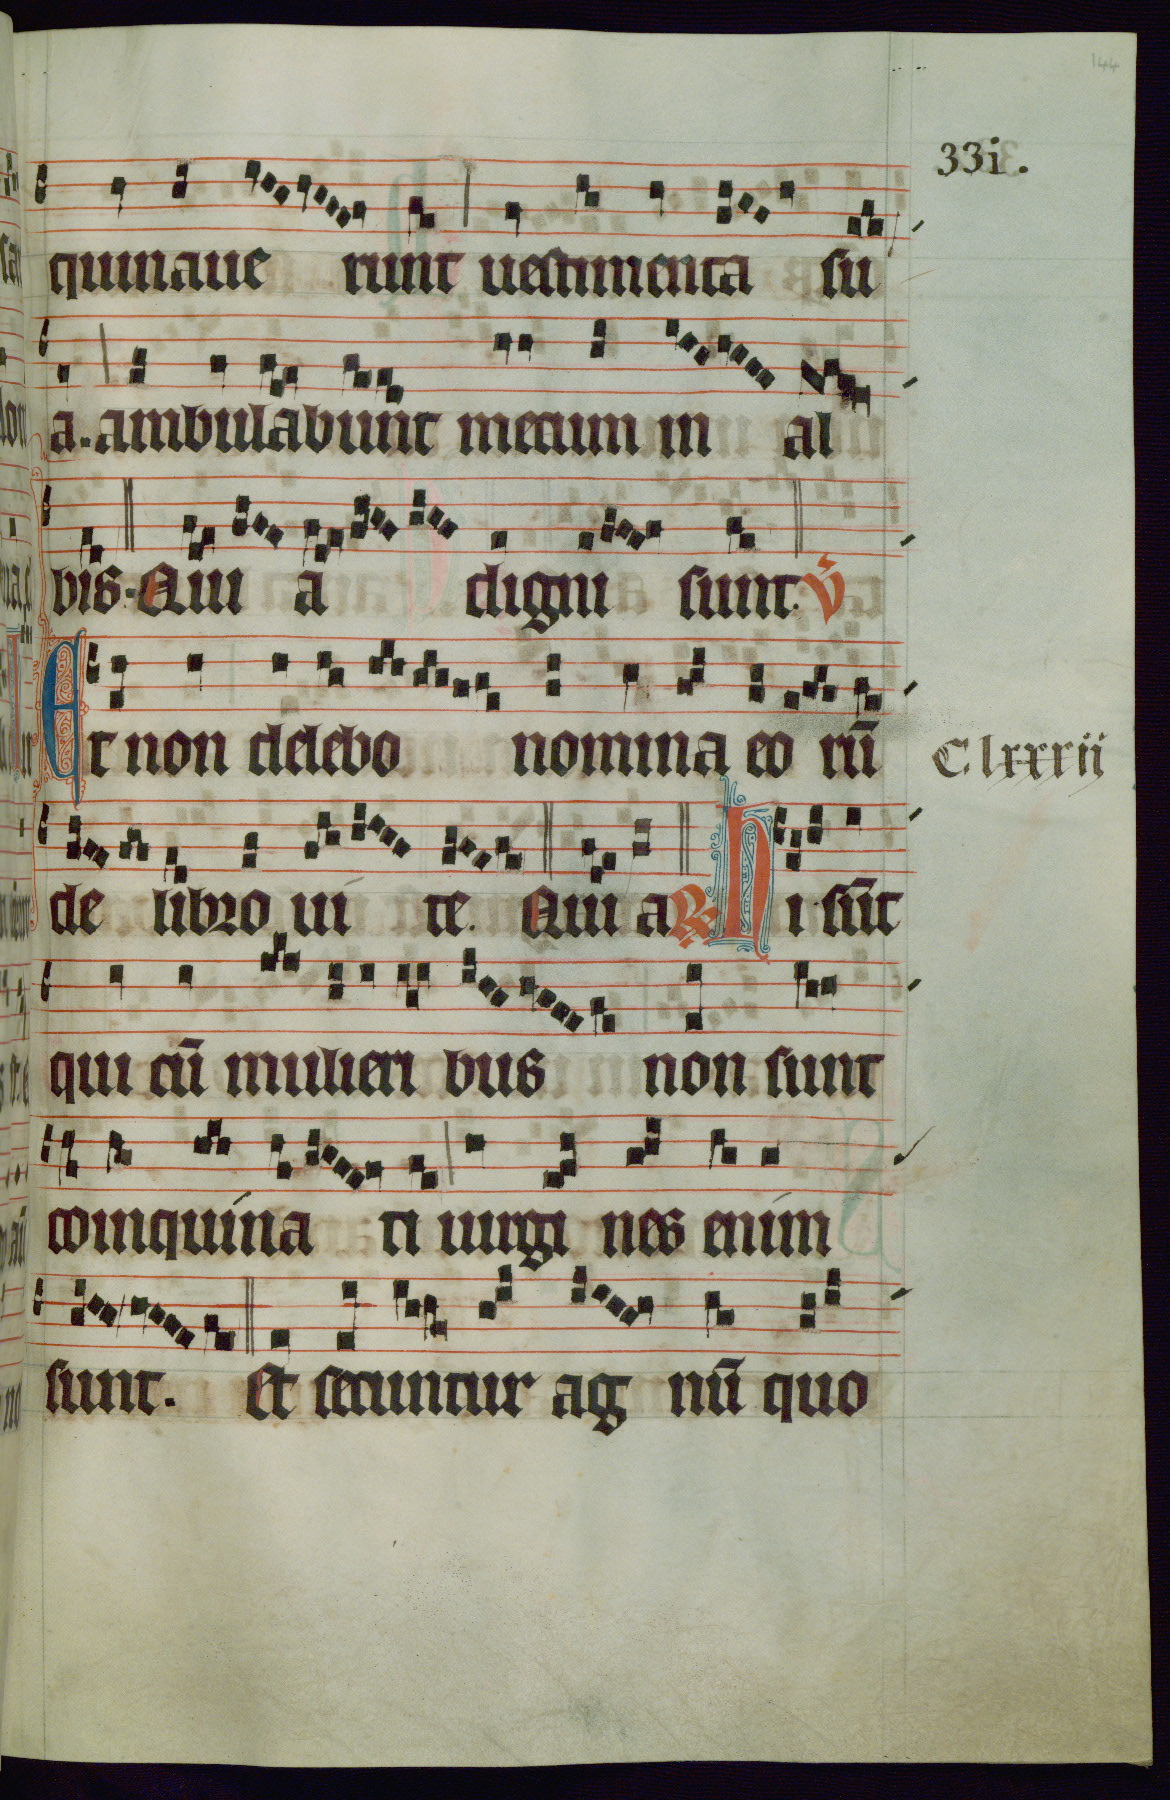 144
33i.
quinaue runt uestimenta su
a. ambulabunt mecum in al
bis. Qui a digni sunt. v̄
Et non delebo nomina eo rū
Clxxxii
de libro ui te. Qui a R Hi sūt
qui cū mulieri bus non sunt
coinquina ti uirgi nes enim
sunt. Et secuntur ag nū quo